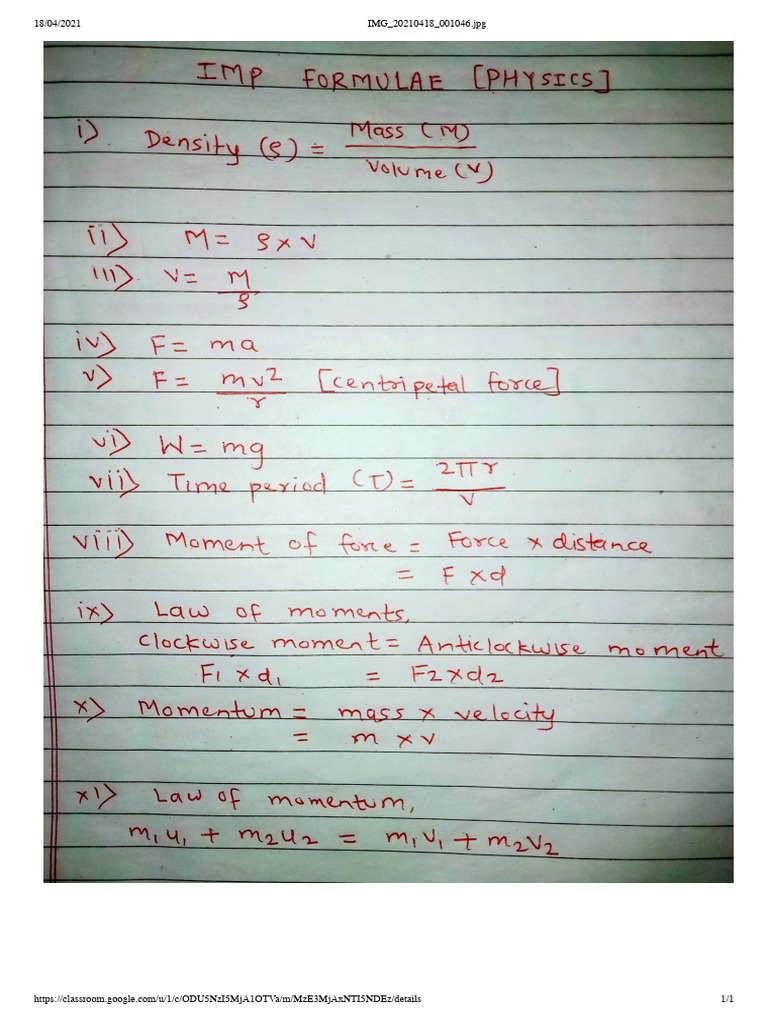 18/04/2021 IMG_20210418_001046.jpg
IMP FORMULAE [PHYSICS]
i) Density (ρ) = Mass (M) / Volume (V)
ii) M = ρ x V
iii) V = M / ρ
iv) F = ma
v) F = mv² / r [centripetal force]
vi) W = mg
vii) Time period (T) = 2πr / v
viii) Moment of force = Force x distance
= F x d
ix) Law of moments,
clockwise moment = Anticlockwise moment
F₁ x d₁ = F₂ x d₂
x) Momentum = mass x velocity
= m x v
xi) Law of momentum,
m₁u₁ + m₂u₂ = m₁v₁ + m₂v₂
https://classroom.google.com/u/1/c/ODU5NzI5MjA1OTVa/m/MzE3MjAxNTI5NDEz/details 1/1